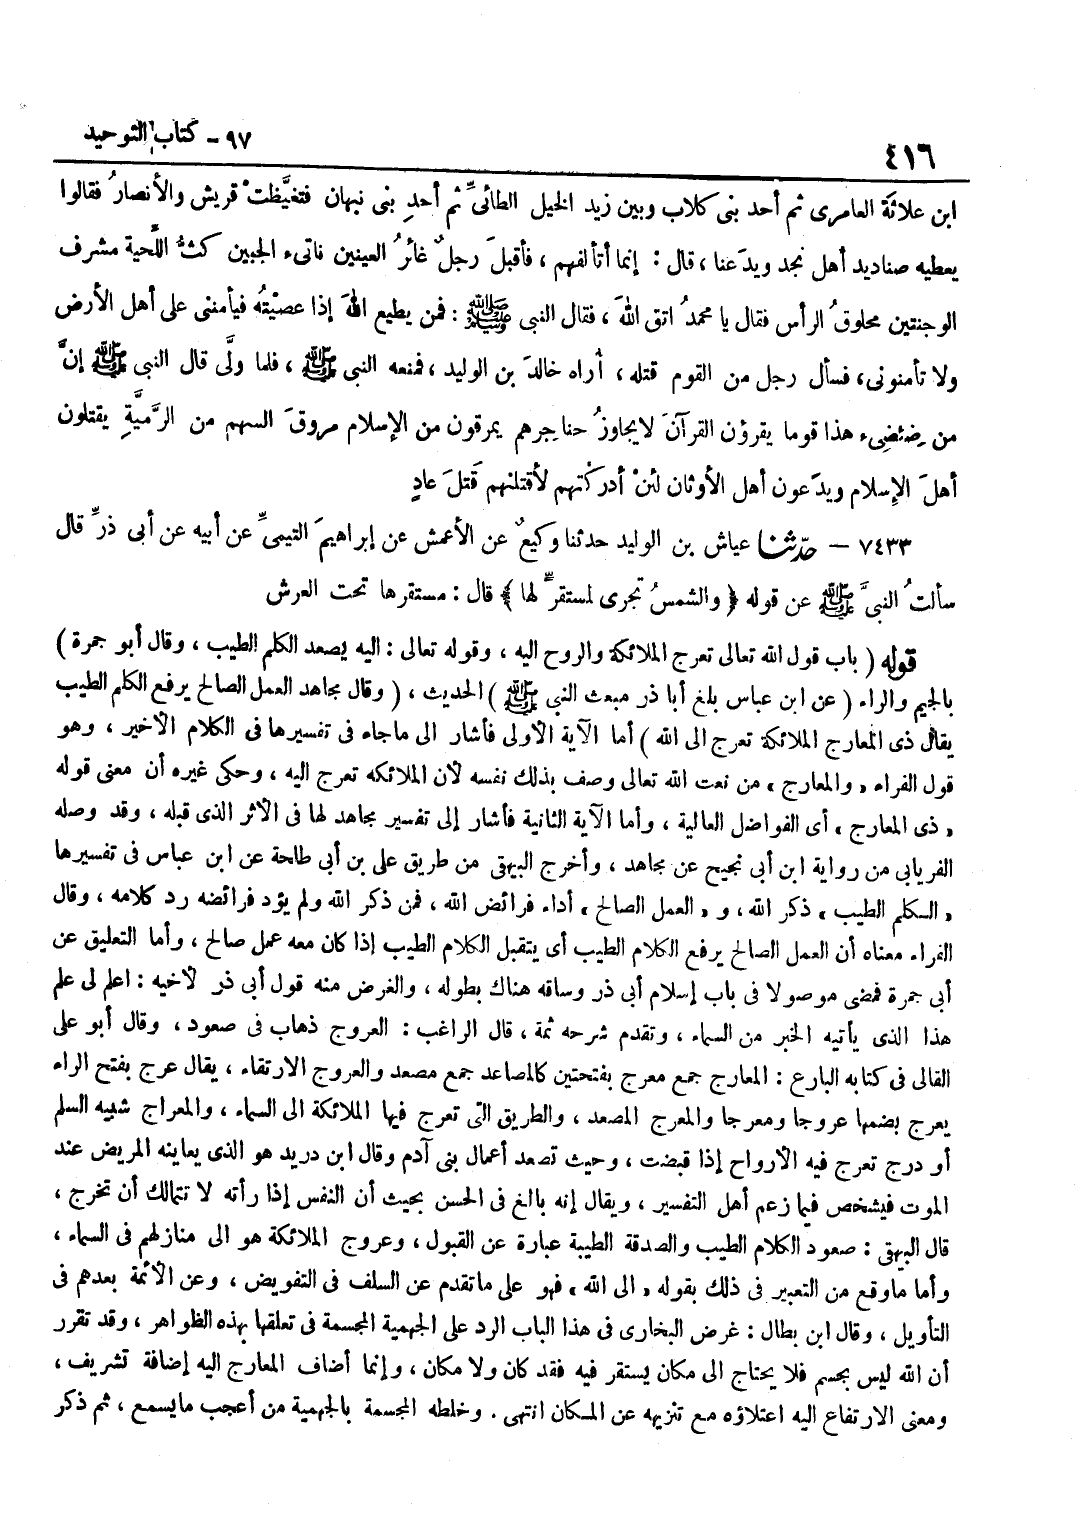 ٤١٦
٩٧ - كتاب التوحيد
ابن علاثة العامرى ثم أحد بنى كلاب وبين زيد الخيل الطائىِّ ثم أحدِ بنى نبهان فتغيَّظتْ قريش والأنصارُ فقالوا
يعطيه صناديد أهل نجد ويدَعنا ، قال : إنما أتألفهم ، فأقبلَ رجلٌ غائرُ العينين ناتىء الجبين كثُّ اللَّحية مشرف
الوجنتين محلوقُ الرأس فقال يا محمدُ اتق اللهَ ، فقال النبى ﷺ : فمن يطيع اللهَ إذا عصيْتُه فيأمنى على أهل الأرض
ولا تأمنونى، فسأل رجل من القوم قتله ، أُراه خالدَ بن الوليد ، فمنعه النبى ﷺ ، فلما ولَّى قال النبى ﷺ إنَّ
من ضِئضِىء هذا قوما يقرؤن القرآنَ لا يجاوزُ حناجرهم يمرقون من الإسلام مروقَ السهم من الرَّميَّةِ يقتلون
أهلَ الإسلام ويدَعون أهل الأوثان لئنْ أدركْتهم لأقتلنهم قَتلَ عادٍ
٧٤٣٣ - حدّثنا عياش بن الوليد حدثنا وكيعٌ عن الأعمش عن إبراهيمَ التيمىِّ عن أبيه عن أبى ذرٍّ قال
سألتُ النبىَّ ﷺ عن قوله ﴿ والشمسُ تجرى لمستقرٍّ لها ﴾ قال : مستقرها تحت العرش
قوله ( باب قول الله تعالى تعرج الملائكة والروح اليه ، وقوله تعالى : اليه يصعد الكلم الطيب ، وقال أبو جمرة )
بالجيم والراء ( عن ابن عباس بلغ أبا ذر مبعث النبى ﷺ ) الحديث ، ( وقال مجاهد العمل الصالح يرفع الكلم الطيب
يقال ذى المعارج الملائكة تعرج الى الله ) أما الآية الأولى فأشار الى ماجاء فى تفسيرها فى الكلام الأخير ، وهو
قول الفراء « والمعارج » من نعت الله تعالى وصف بذلك نفسه لأن الملائكه تعرج اليه ، وحكى غيره أن معنى قوله
« ذى المعارج » أى الفواضل العالية ، وأما الآية الثانية فأشار إلى تفسير مجاهد لها فى الأثر الذى قبله ، وقد وصله
الفريابى من رواية ابن أبى نجيح عن مجاهد ، وأخرج البيهقى من طريق على بن أبى طلحة عن ابن عباس فى تفسيرها
« الكلم الطيب » ذكر الله ، و « العمل الصالح » أداء فرائض الله ، فمن ذكر الله ولم يؤد فرائضه رد كلامه ، وقال
الفراء معناه أن العمل الصالح يرفع الكلام الطيب أى يتقبل الكلام الطيب إذا كان معه عمل صالح ، وأما التعليق عن
أبى جمرة فمضى موصولا فى باب إسلام أبى ذر وساقه هناك بطوله ، والغرض منه قول أبى ذر لأخيه : اعلم لى علم
هذا الذى يأتيه الخبر من السماء ، وتقدم شرحه ثمة ، قال الراغب : العروج ذهاب فى صعود ، وقال أبو على
القالى فى كتابه البارع : المعارج جمع معرج بفتحتين كالمصاعد جمع مصعد والعروج الارتقاء ، يقال عرج بفتح الراء
يعرج بضمها عروجا ومعرجا والمعرج المصعد ، والطريق التى تعرج فيها الملائكة الى السماء ، والمعراج شبيه السلم
أو درج تعرج فيه الأرواح إذا قبضت ، وحيث تصعد أعمال بنى آدم وقال ابن دريد هو الذى يعاينه المريض عند
الموت فيشخص فيما زعم أهل التفسير ، ويقال إنه بالغ فى الحسن بحيث أن النفس إذا رأته لا تتمالك أن تخرج ،
قال البيهقى : صعود الكلام الطيب والصدقة الطيبة عبارة عن القبول ، وعروج الملائكة هو الى منازلهم فى السماء ،
وأما ماوقع من التعبير فى ذلك بقوله « الى الله » فهو على ماتقدم عن السلف فى التفويض ، وعن الأئمة بعدهم فى
التأويل ، وقال ابن بطال : غرض البخارى فى هذا الباب الرد على الجهمية المجسمة فى تعلقها بهذه الظواهر ، وقد تقرر
أن الله ليس بجسم فلا يحتاج الى مكان يستقر فيه فقد كان ولا مكان ، وإنما أضاف المعارج اليه إضافة تشريف ،
ومعنى الارتفاع اليه اعتلاؤه مع تنزيهه عن المكان انتهى . وخلطه المجسمة بالجهمية من أعجب مايسمع ، ثم ذكر